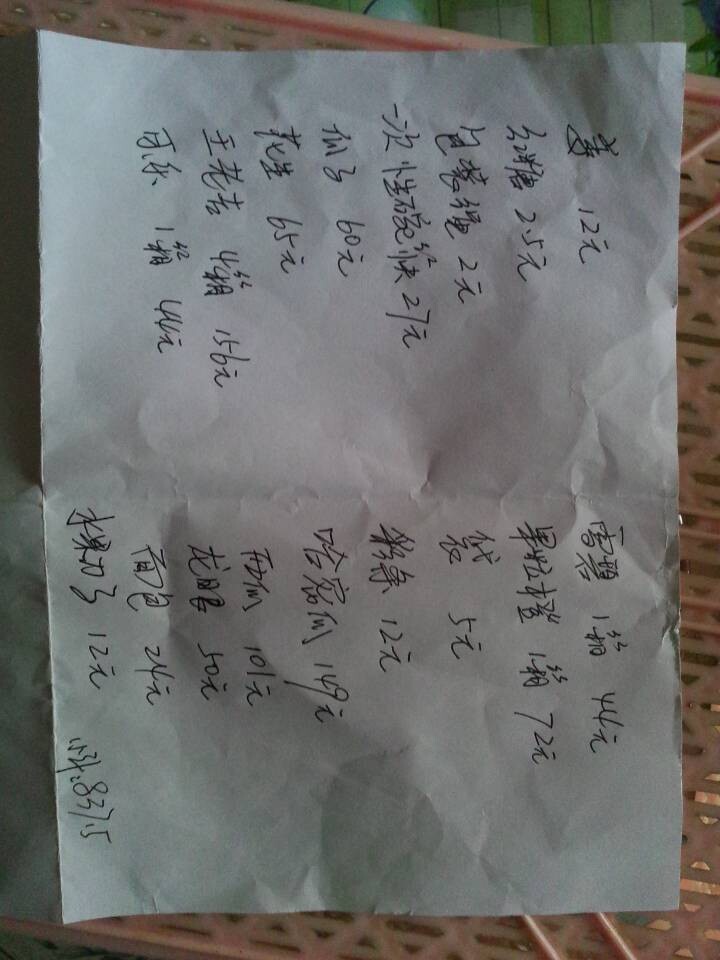 12元
红糖 2.5元
包装绳 2元
一次性碗筷 27元
瓜子 60元
花生 65元
王老吉 4箱 156元
可乐 1箱 44元
雪碧 1箱 44元
果粒橙 1箱 72元
袋 5元
12元
哈密瓜 149元
西瓜 101元
龙眼 50元
面包 24元
水果刀子 12元
小计:837.5